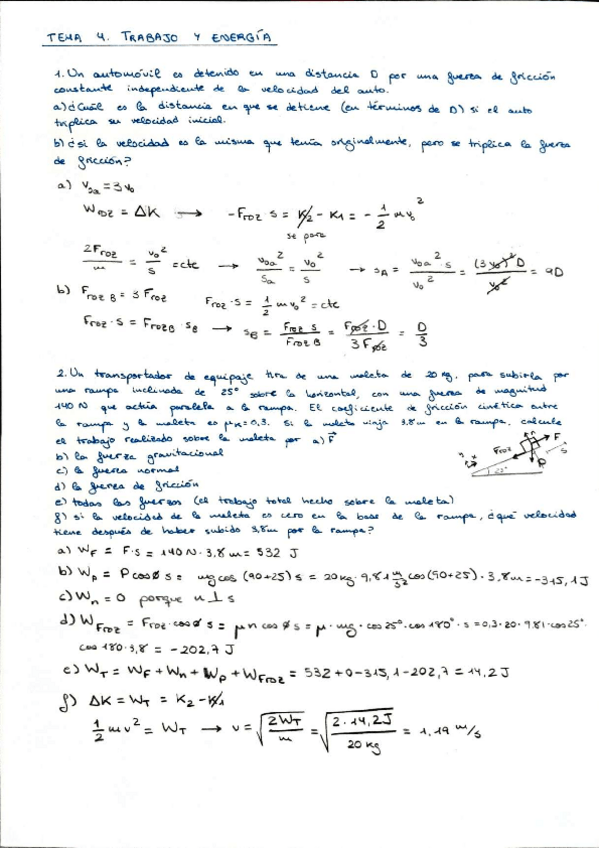 TEMA 4. TRABAJO Y ENERGÍA
1. Un automóvil es detenido en una distancia D por una fuerza de fricción
constante independiente de la velocidad del auto.
a) ¿Cuál es la distancia en que se detiene (en términos de D) si el auto
triplica su velocidad inicial.
b) ¿si la velocidad es la misma que tenía originalmente, pero se triplica la fuerza
de fricción?
a) v₀a = 3v₀
W_FROZ = ΔK → -F_ROZ s = K₂ - K₁ = - 1/2 m v₀²
se para
2F_ROZ/m = v₀²/s = cte → v₀a²/sa = v₀²/s → s_A = v₀a²·s/v₀² = (3v₀)²D/v₀² = 9D
b) F_ROZ B = 3 F_ROZ F_ROZ·s = 1/2 m v₀² = cte
F_ROZ·s = F_ROZB·s_B → s_B = F_ROZ s/F_ROZ B = F_ROZ·D/3F_ROZ = D/3
2. Un transportador de equipaje tira de una maleta de 20 kg, para subirla por
una rampa inclinada de 25° sobre la horizontal, con una fuerza de magnitud
140 N que actúa paralela a la rampa. El coeficiente de fricción cinética entre
la rampa y la maleta es μk=0,3. Si la maleta viaja 3,8m en la rampa, calcule
el trabajo realizado sobre la maleta por a) F⃗
b) la fuerza gravitacional
c) la fuerza normal
d) la fuerza de fricción
e) todas las fuerzas (el trabajo total hecho sobre la maleta)
f) si la velocidad de la maleta es cero en la base de la rampa, ¿qué velocidad
tiene después de haber subido 3,8m por la rampa?
F_ROZ F s P 25°
a) W_F = F·s = 140N·3,8m = 532 J
b) W_p = P cosø s = mg cos (90+25) s = 20kg·9,81 m/s² cos(90+25)·3,8m = -315,1J
c) W_n = 0 porque n⊥s
d) W_FROZ = F_ROZ·cosø s = μ n cosø s = μ·mg·cos25°·cos180°·s = 0,3·20·9,81·cos25°·
cos180·3,8 = -202,7 J
e) W_T = W_F + W_n + W_p + W_FROZ = 532+0-315,1-202,7 = 14,2J
f) ΔK = W_T = K₂ - K₁
1/2 m v² = W_T → v = √(2W_T/m) = √(2·14,2J/20kg) = 1,19 m/s